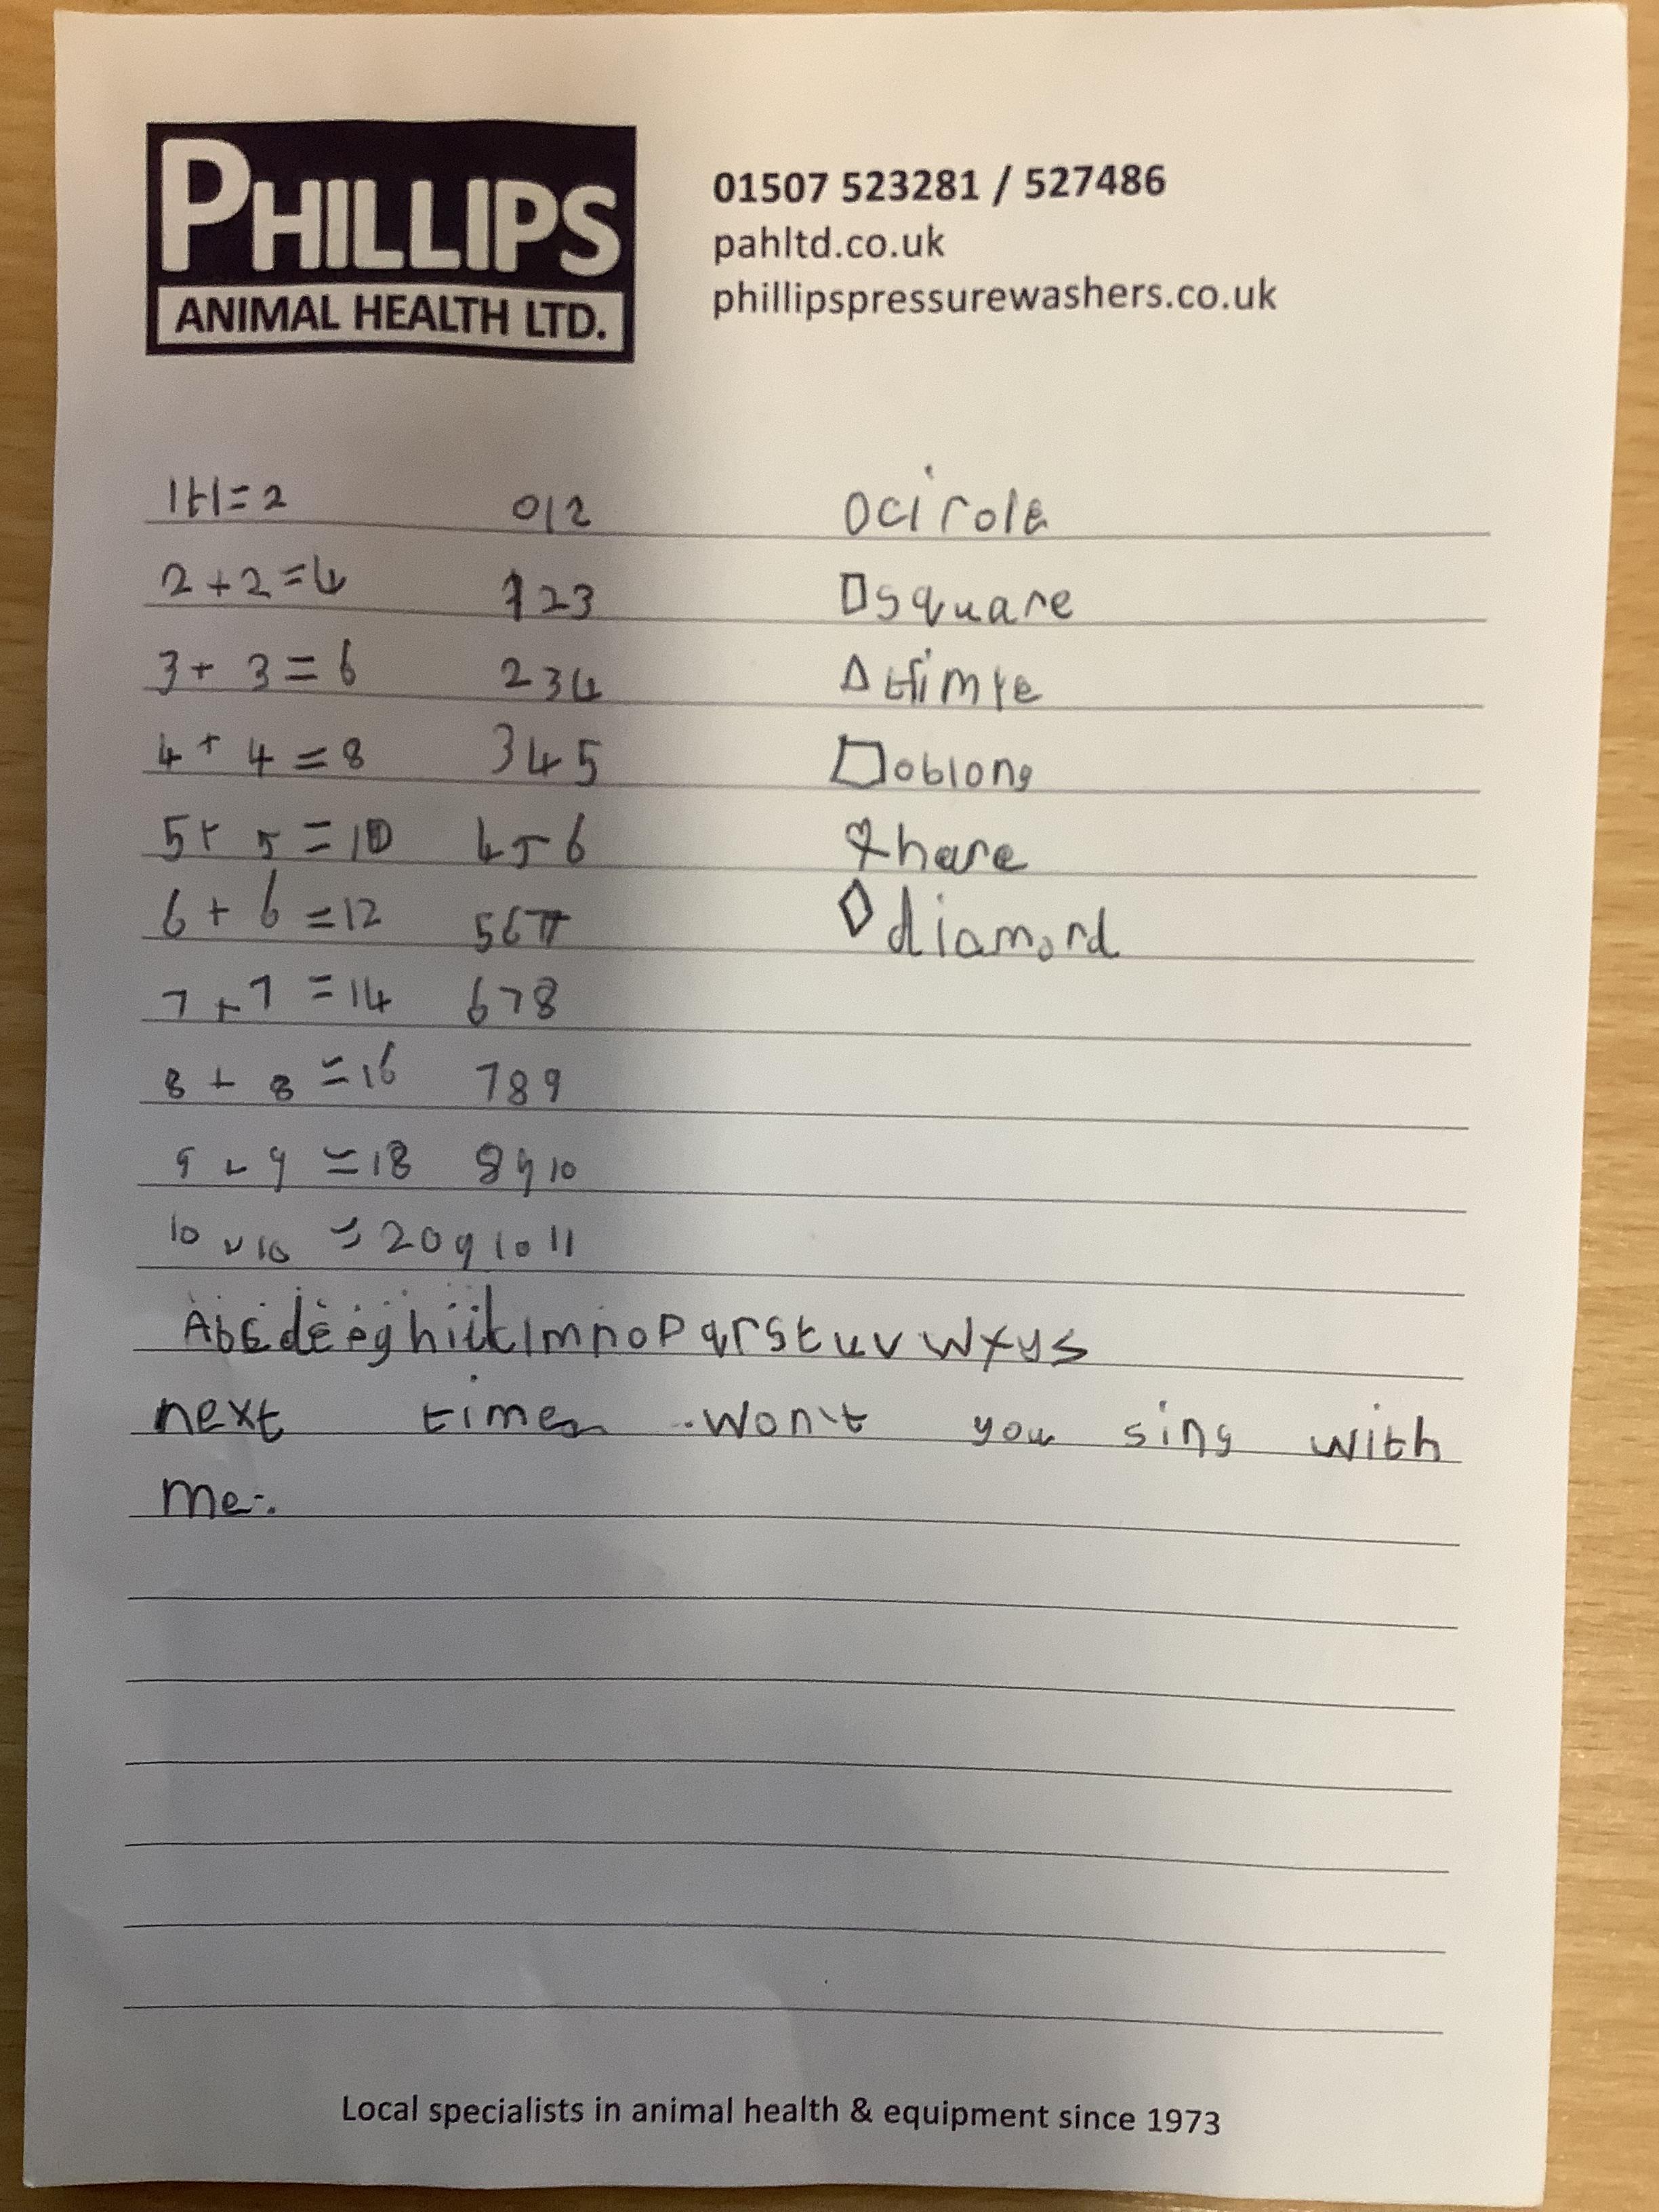 PHILLIPS
ANIMAL HEALTH LTD.
01507 523281 / 527486
pahltd.co.uk
phillipspressurewashers.co.uk
1+1=2 012 circle
2+2=4 123 square
3+3=6 234
4+4=8 345 oblong
5+5=10 456 hare
6+6=12 567 diamond
7+7=14 678
8+8=16 789
9+9=18 8910
10+10=20 91011
Abcdeeghiiklmnopqrstuvwxys
next time won't you sing with
me.
Local specialists in animal health & equipment since 1973